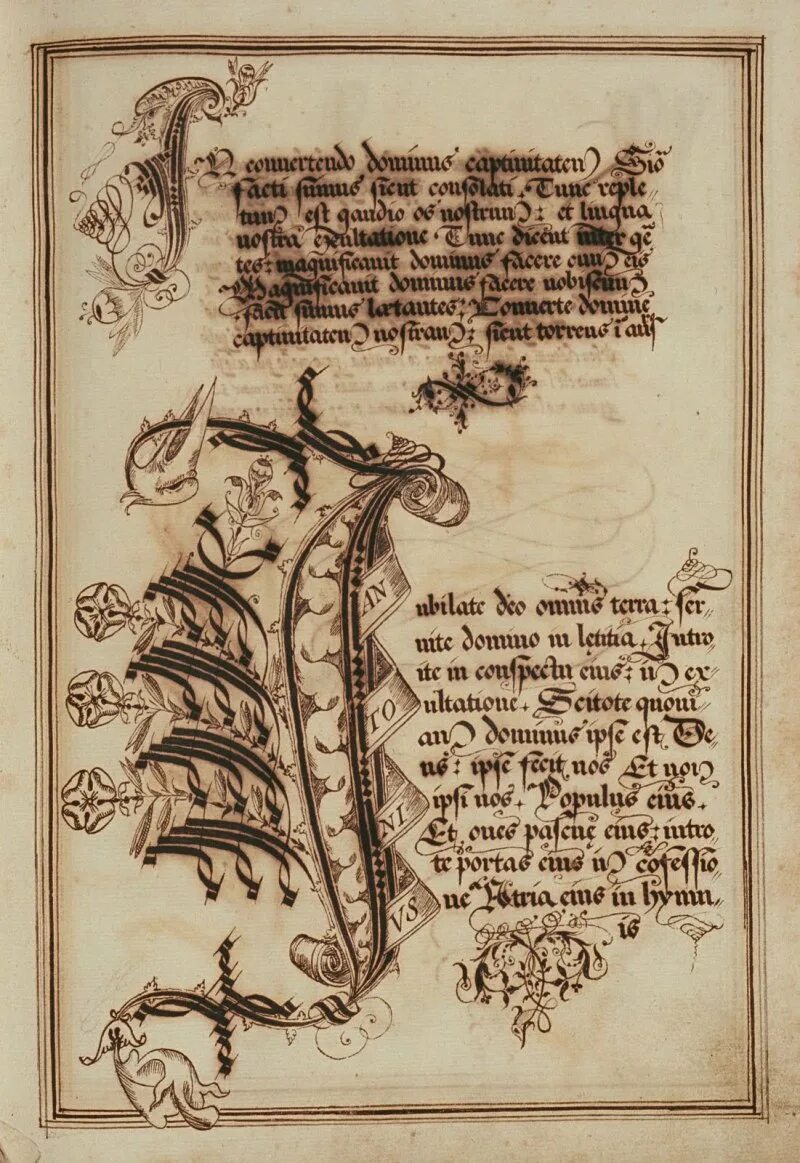 IN conuertendo dominus captiuitatem Siō
facti sumus sicut consolati. Tunc reple-
tum est gaudio os nostrum: et lingua
nostra exultatione. Tunc dicent inter gē
tes: magnificauit dominus facere cum eis
Magnificauit dominus facere nobiscum
facti sumus laetantes: Conuerte domine
captiuitatem nostram: sicut torrens ī aus
Iubilate deo omnis terra: ser-
uite domino in lętitia. Intro-
ite in conspectu eius: in ex-
ultatione. Scitote quoni-
am dominus ipse est De-
us: ipse fecit nos Et non
ipsi nos. Populus eius.
Et oues pascuę eius: intro
te portas eius in cōfessio-
ne Atria eius in hymn-
is
AN
TO
NI
VS